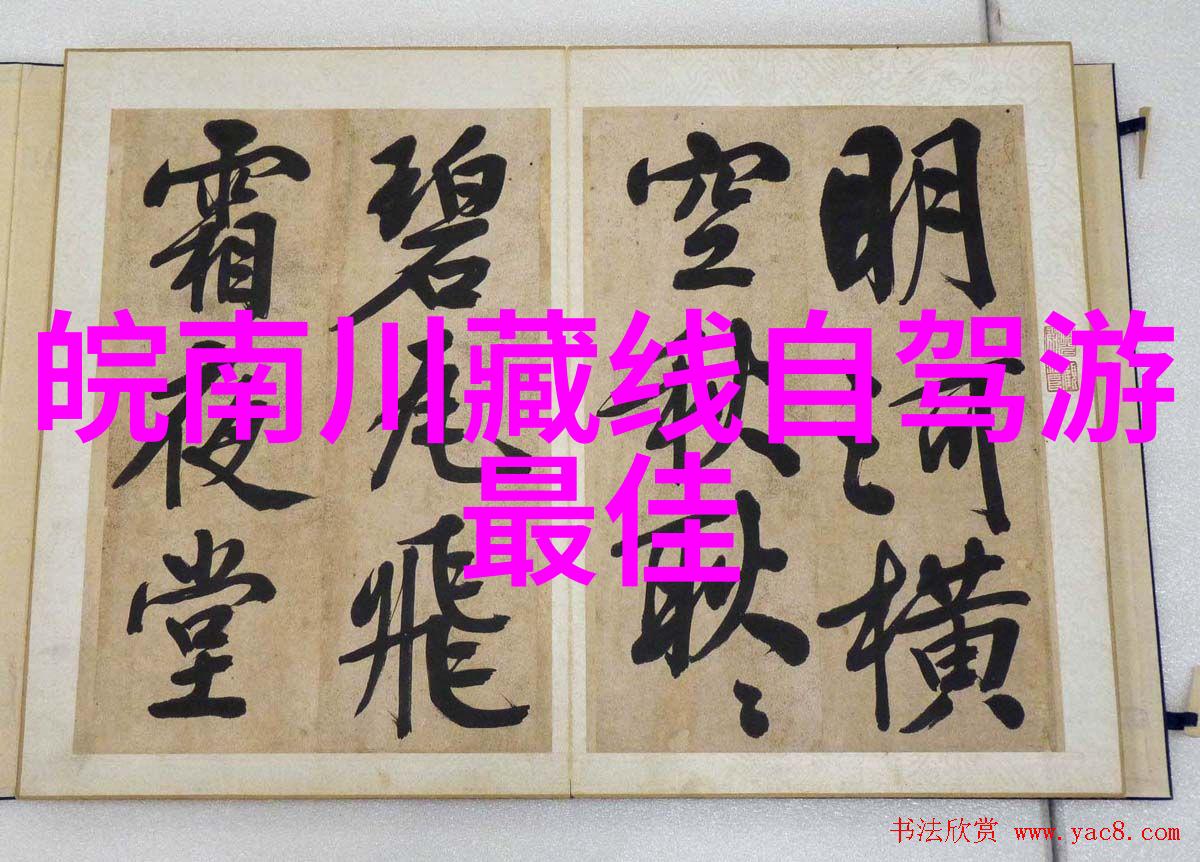 皖南川藏线自驾游
最佳
明河橫
空秋耿〻
碧瓦飛
霜夜堂
书法欣赏 www.yac8.com